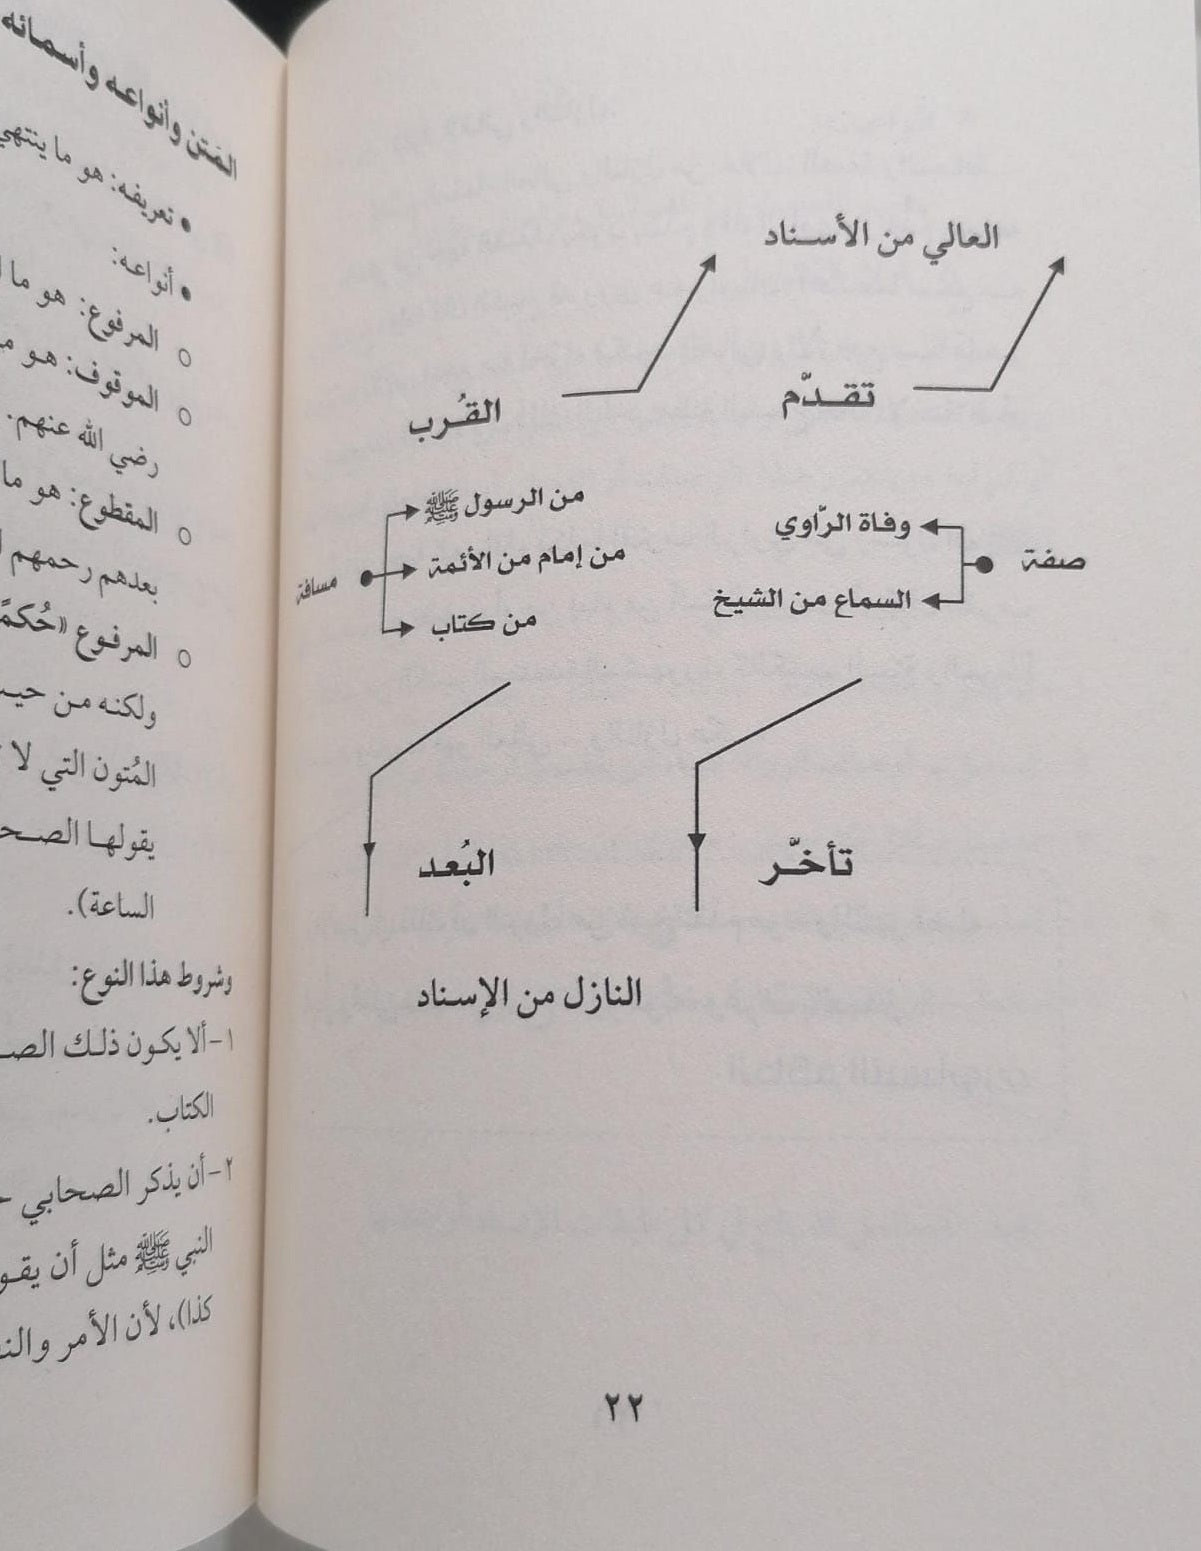 العالي من الأسناد
تقدّم
القُرب
صفة
وفاة الرّاوي
السماع من الشيخ
مسافة
من الرسول ﷺ
من إمام من الأئمة
من كتاب
تأخّر
البُعد
النازل من الإسناد
٢٢
المَتن وأنواعه وأسمائه
• تعريفه: هو ما ينتهي
• أنواعه:
○ المرفوع: هو ما
○ الموقوف: هو
رضي الله عنهم.
○ المقطوع: هو ما
بعدهم رحمهم
○ المرفوع «حُكمًا
ولكنه من
المُتون التي لا
يقولها
الساعة).
وشروط هذا النوع:
١-ألا يكون ذلك
الكتاب.
٢-أن يذكر الصحابي
النبي ﷺ مثل أن
كذا)، لأن الأمر